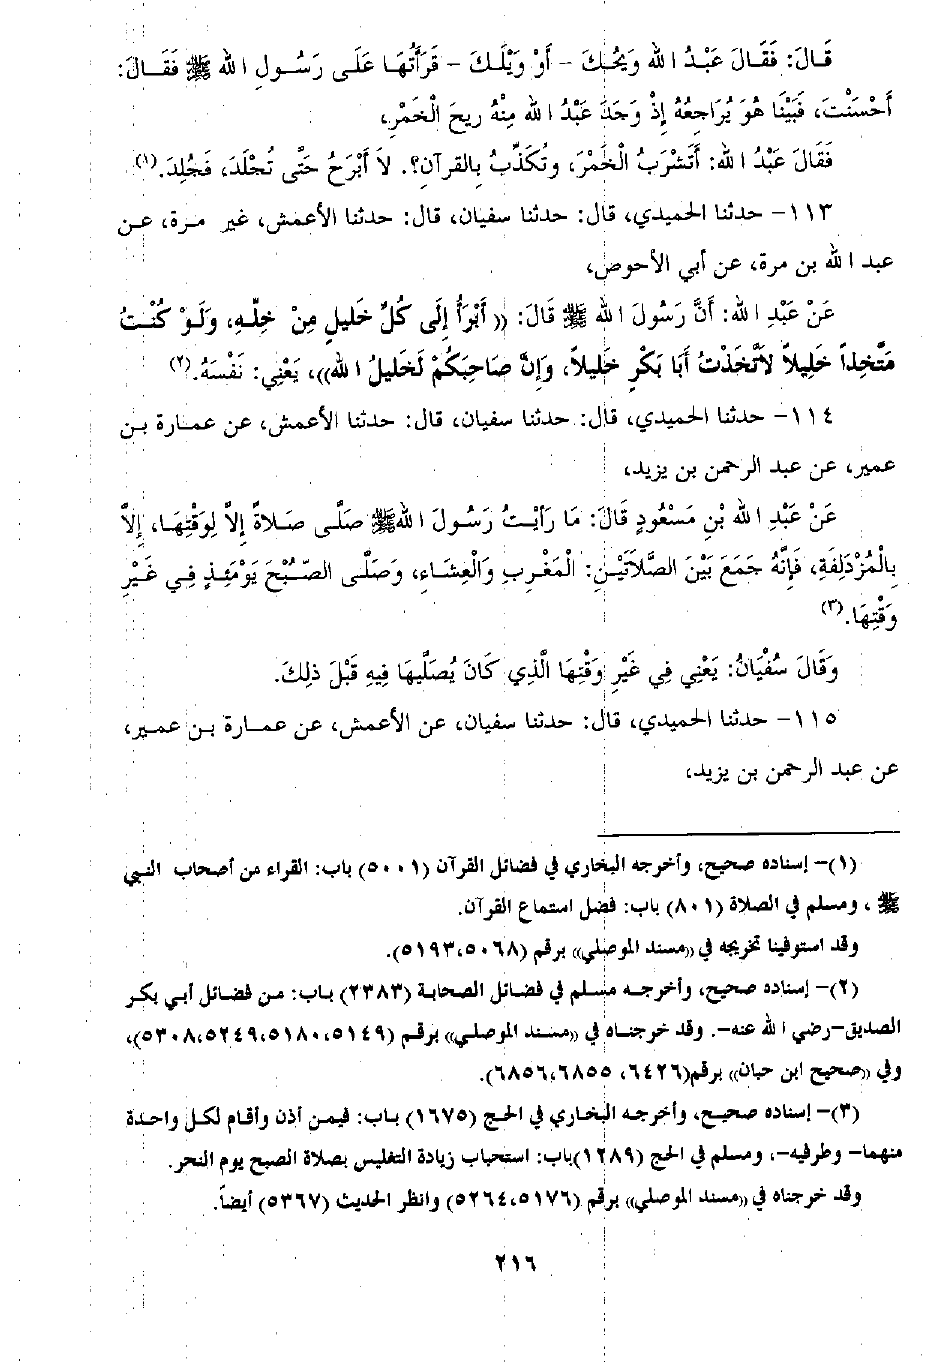 قَالَ: فَقَالَ عَبْدُ الله وَيْحُكَ – أَوْ وَيْلَكَ – قَرَأْتُهَا عَلَى رَسُولِ الله ﷺ فَقَالَ:
أَحْسَنْتَ، فَبَيْنَا هُوَ يُرَاجِعُهُ إِذْ وَجَدَ عَبْدُ الله مِنْهُ رِيحَ الْخَمْرِ،
فَقَالَ عَبْدُ الله: أَتَشْرَبُ الْخَمْرَ، وتُكَذِّبُ بالقرآن؟. لاَ أَبْرَحُ حَتَّى تُجْلَدَ، فَجُلِدَ.(١)
١١٣– حدثنا الحميدي، قال: حدثنا سفيان، قال: حدثنا الأعمش، غير مرة، عن
عبد الله بن مرة، عن أبي الأحوص،
عَنْ عَبْدِ الله: أَنَّ رَسُولَ الله ﷺ قَالَ: ((أَبْرَأُ إِلَى كُلِّ خَلِيلٍ مِنْ خِلِّهِ، وَلَوْ كُنْتُ
مَتَّخِذاً خَلِيلاً لاَتَّخَذْتُ أَبَا بَكْرٍ خَلِيلاً، وَإِنَّ صَاحِبَكُمْ لَخَلِيلُ الله))، يَعْنِي: نَفْسَهُ.(٢)
١١٤– حدثنا الحميدي، قال: حدثنا سفيان، قال: حدثنا الأعمش، عن عمارة بن
عمير، عن عبد الرحمن بن يزيد،
عَنْ عَبْدِ الله بْنِ مَسْعُودٍ قَالَ: مَا رَأَيْتُ رَسُولَ الله ﷺ صَلَّى صَلاَةً إِلاَّ لِوَقْتِهَا، إِلاَّ
بِالْمُزْدَلِفَةِ، فَإِنَّهُ جَمَعَ بَيْنَ الصَّلاَتَيْنِ: الْمَغْرِبِ وَالْعِشَاءِ، وَصَلَّى الصُّبْحَ يَوْمَئِذٍ فِي غَيْرِ
وَقْتِهَا.(٣)
وَقَالَ سُفْيَانُ: يَعْنِي فِي غَيْرِ وَقْتِهَا الَّذِي كَانَ يُصَلِّيهَا فِيهِ قَبْلَ ذلِكَ.
١١٥– حدثنا الحميدي، قال: حدثنا سفيان، عن الأعمش، عن عمارة بن عمير،
عن عبد الرحمن بن يزيد،
(١)– إسناده صحيح، وأخرجه البخاري في فضائل القرآن (٥٠٠١) باب: القراء من أصحاب النبي
ﷺ ، ومسلم في الصلاة (٨٠١) باب: فضل استماع القرآن.
وقد استوفينا تخريجه في ((مسند الموصلي)) برقم (٥٠٦٨،٥١٩٣).
(٢)– إسناده صحيح، وأخرجه مسلم في فضائل الصحابة (٢٣٨٣) باب: من فضائل أبي بكر
الصديق–رضي الله عنه–. وقد خرجناه في ((مسند الموصلي)) برقم (٥١٤٩،٥١٨٠،٥٢٤٩،٥٣٠٨)،
وفي ((صحيح ابن حبان)) برقم(٦٤٢٦، ٦٨٥٥،٦٨٥٦).
(٣)– إسناده صحيح، وأخرجه البخاري في الحج (١٦٧٥) باب: فيمن أذن وأقام لكل واحدة
منهما– وطرفيه–، ومسلم في الحج (١٢٨٩)باب: استحباب زيادة التغليس بصلاة الصبح يوم النحر.
وقد خرجناه في ((مسند الموصلي)) برقم (٥١٧٦،٥٢٦٤) وانظر الحديث (٥٣٦٧) أيضاً.
٢١٦